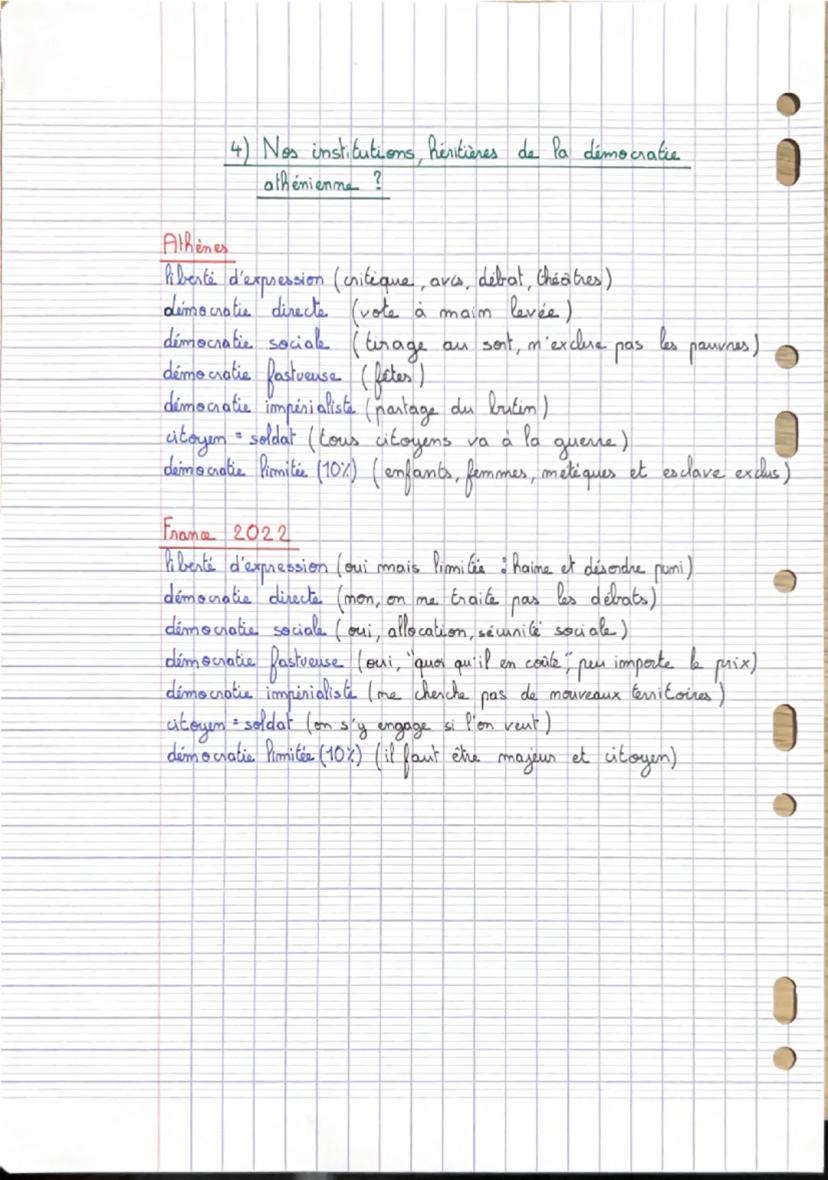 4) Nos institutions, héritières de la démocratie
athénienne ?
Athènes
liberté d'expression (critique, avis, débat, théâtres)
démocratie directe (vote à main levée)
démocratie sociale (tirage au sort, n'exclue pas les pauvres)
démocratie fastueuse (fêtes)
démocratie impérialiste (partage du butin)
citoyen = soldat (tous citoyens va à la guerre)
démocratie limitée (10%) (enfants, femmes, métèques et esclave exclus)
France 2022
liberté d'expression (oui mais limitée : haine et désordre puni)
démocratie directe (non, on ne traite pas les débats)
démocratie sociale (oui, allocation, sécurité sociale)
démocratie fastueuse (oui, "quoi qu'il en coûte", peu importe le prix)
démocratie impérialiste (ne cherche pas de nouveaux territoires)
citoyen = soldat (on s'y engage si l'on veut)
démocratie limitée (10%) (il faut être majeur et citoyen)